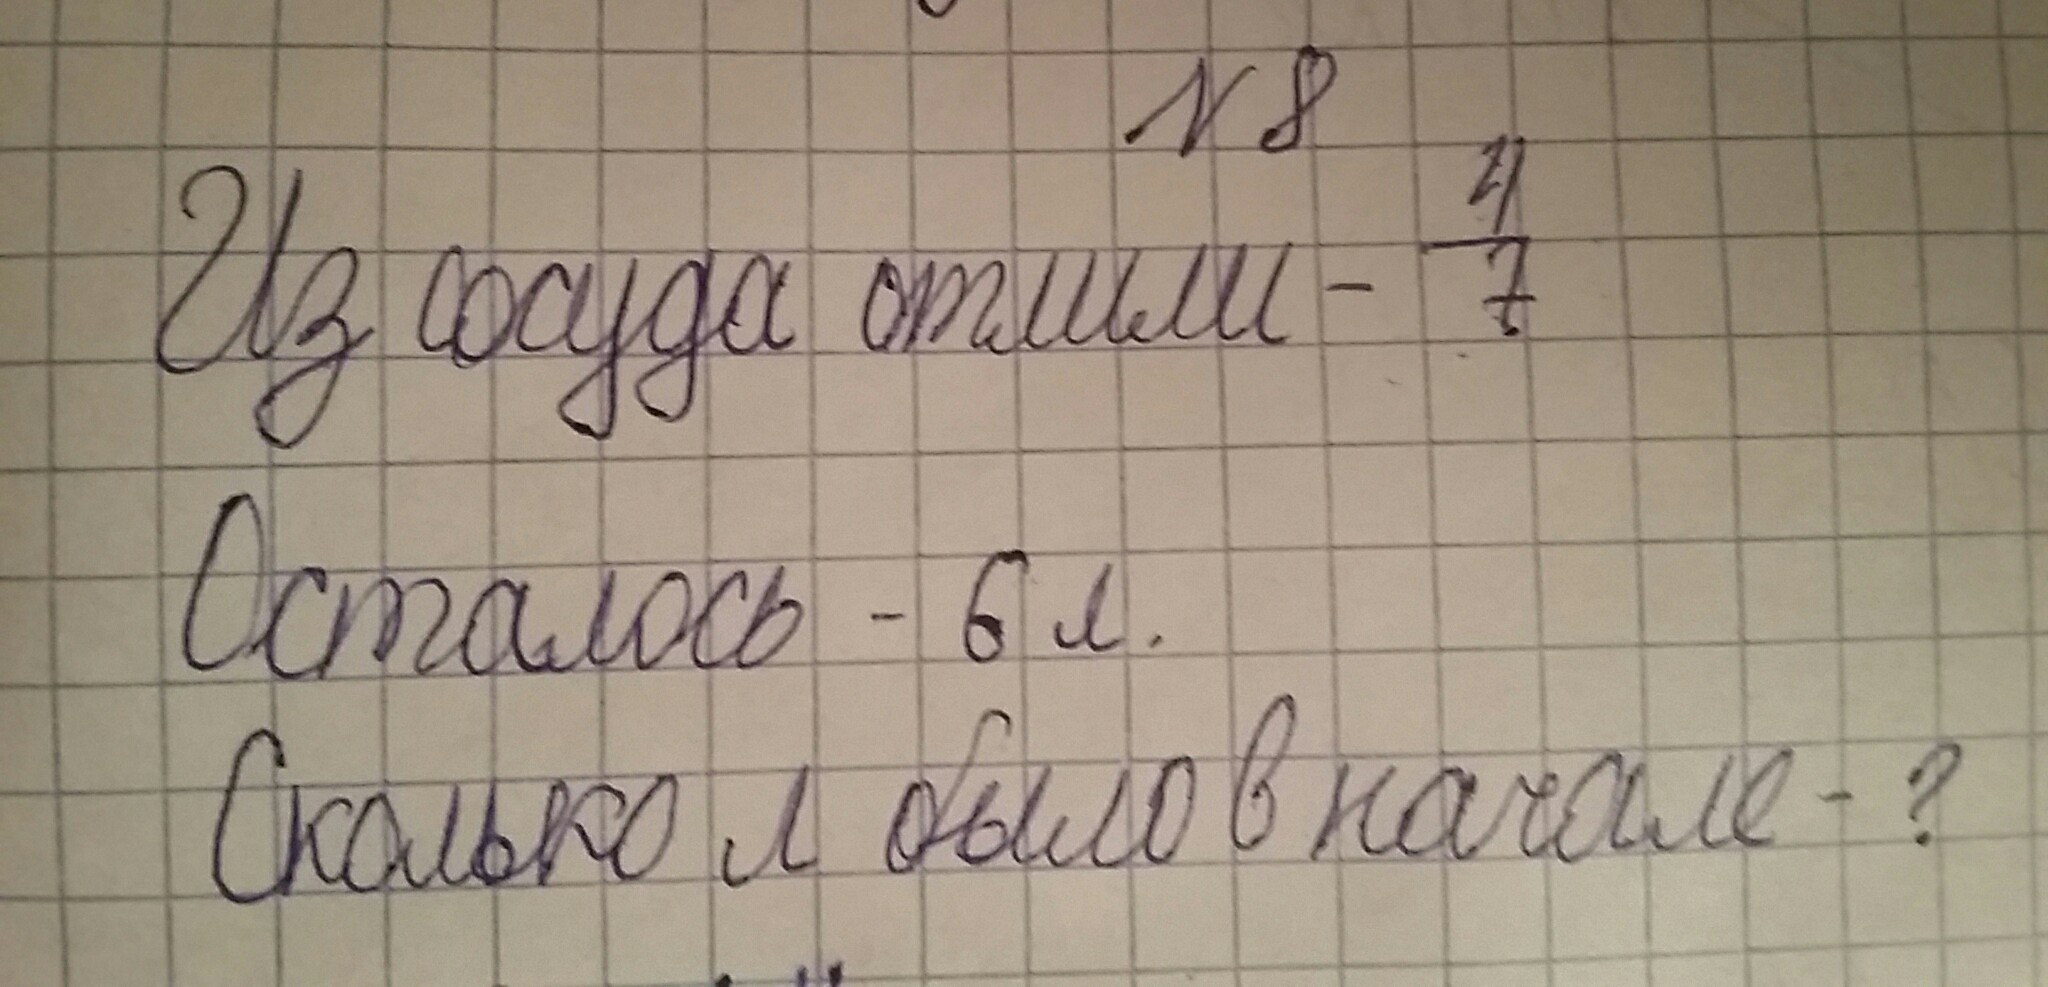 N 8
Из сосуда отлили - 4/7
Осталось - 6 л.
Сколько л было в начале - ?